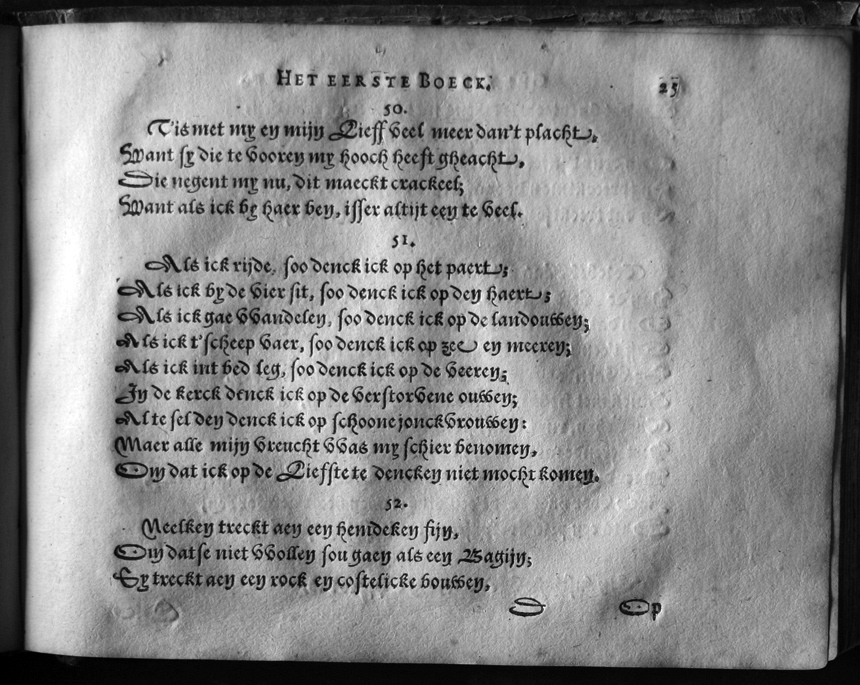 HET EERSTE BOECK. 25
50.
Tis met my en mijn Lieff veel meer dan't placht,
Want sy die te vooren my hooch heeft gheacht,
Die negent my nu, dit maeckt crackeel;
Want als ick by haer ben, isser altijt een te veel.
51.
Als ick rijde, soo denck ick op het paert;
Als ick by de vier sit, soo denck ick op den haert;
Als ick gae VVandelen, soo denck ick op de landouwen;
Als ick t'scheep vaer, soo denck ick op zee en meeren;
Als ick int bed leg, soo denck ick op de veeren;
In de kerck denck ick op de verstorvene ouwen;
Al te selden denck ick op schoone jonckvrouwen:
Maer alle mijn vreucht VVas my schier benomen,
Om dat ick op de Liefste te dencken niet mocht komen.
52.
Neelken treckt aen een hemdeken fijn,
Om datse niet VVollen sou gaen als een Bagijn;
Sy treckt aen een rock en costelicke bouwen,
D Op